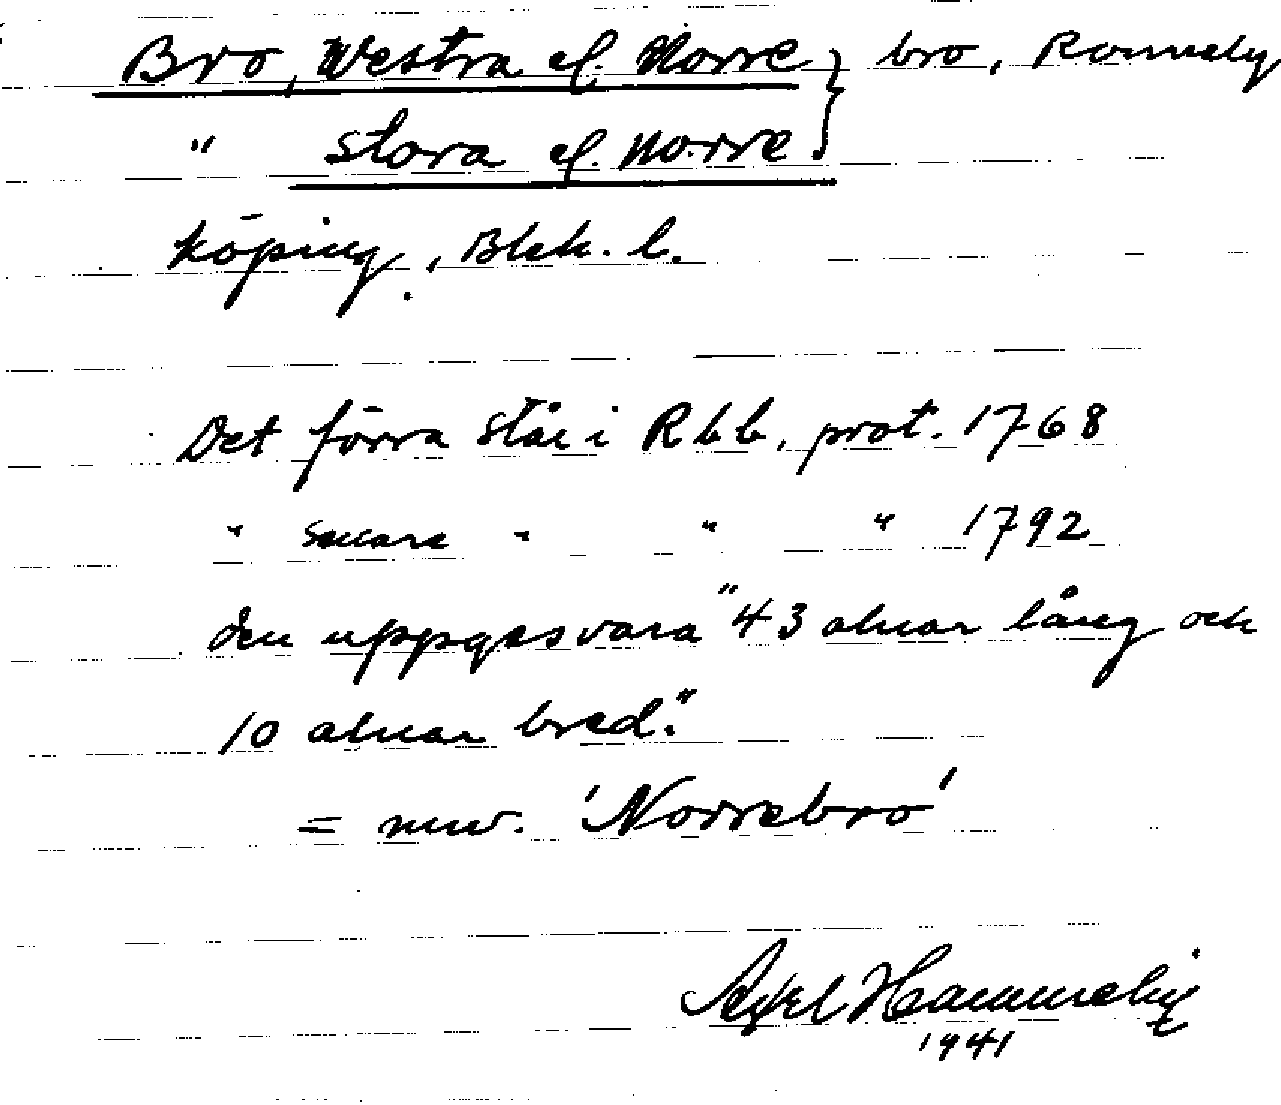 Bro, Westra el. Norre } bro, Ronneby
" Stora el. Norre
köping, Blek. l.
Det förra står i Rbb. prot. 1768
" senare " " " 1792
den uppges vara "43 alnar lång och
10 alnar bred."
= nuv. 'Norrebro'
Axel
1941